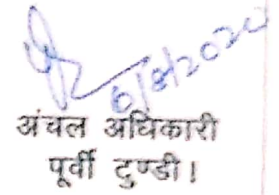 6/8/2020
अंचल अधिकारी
पूर्वी टुण्डी।